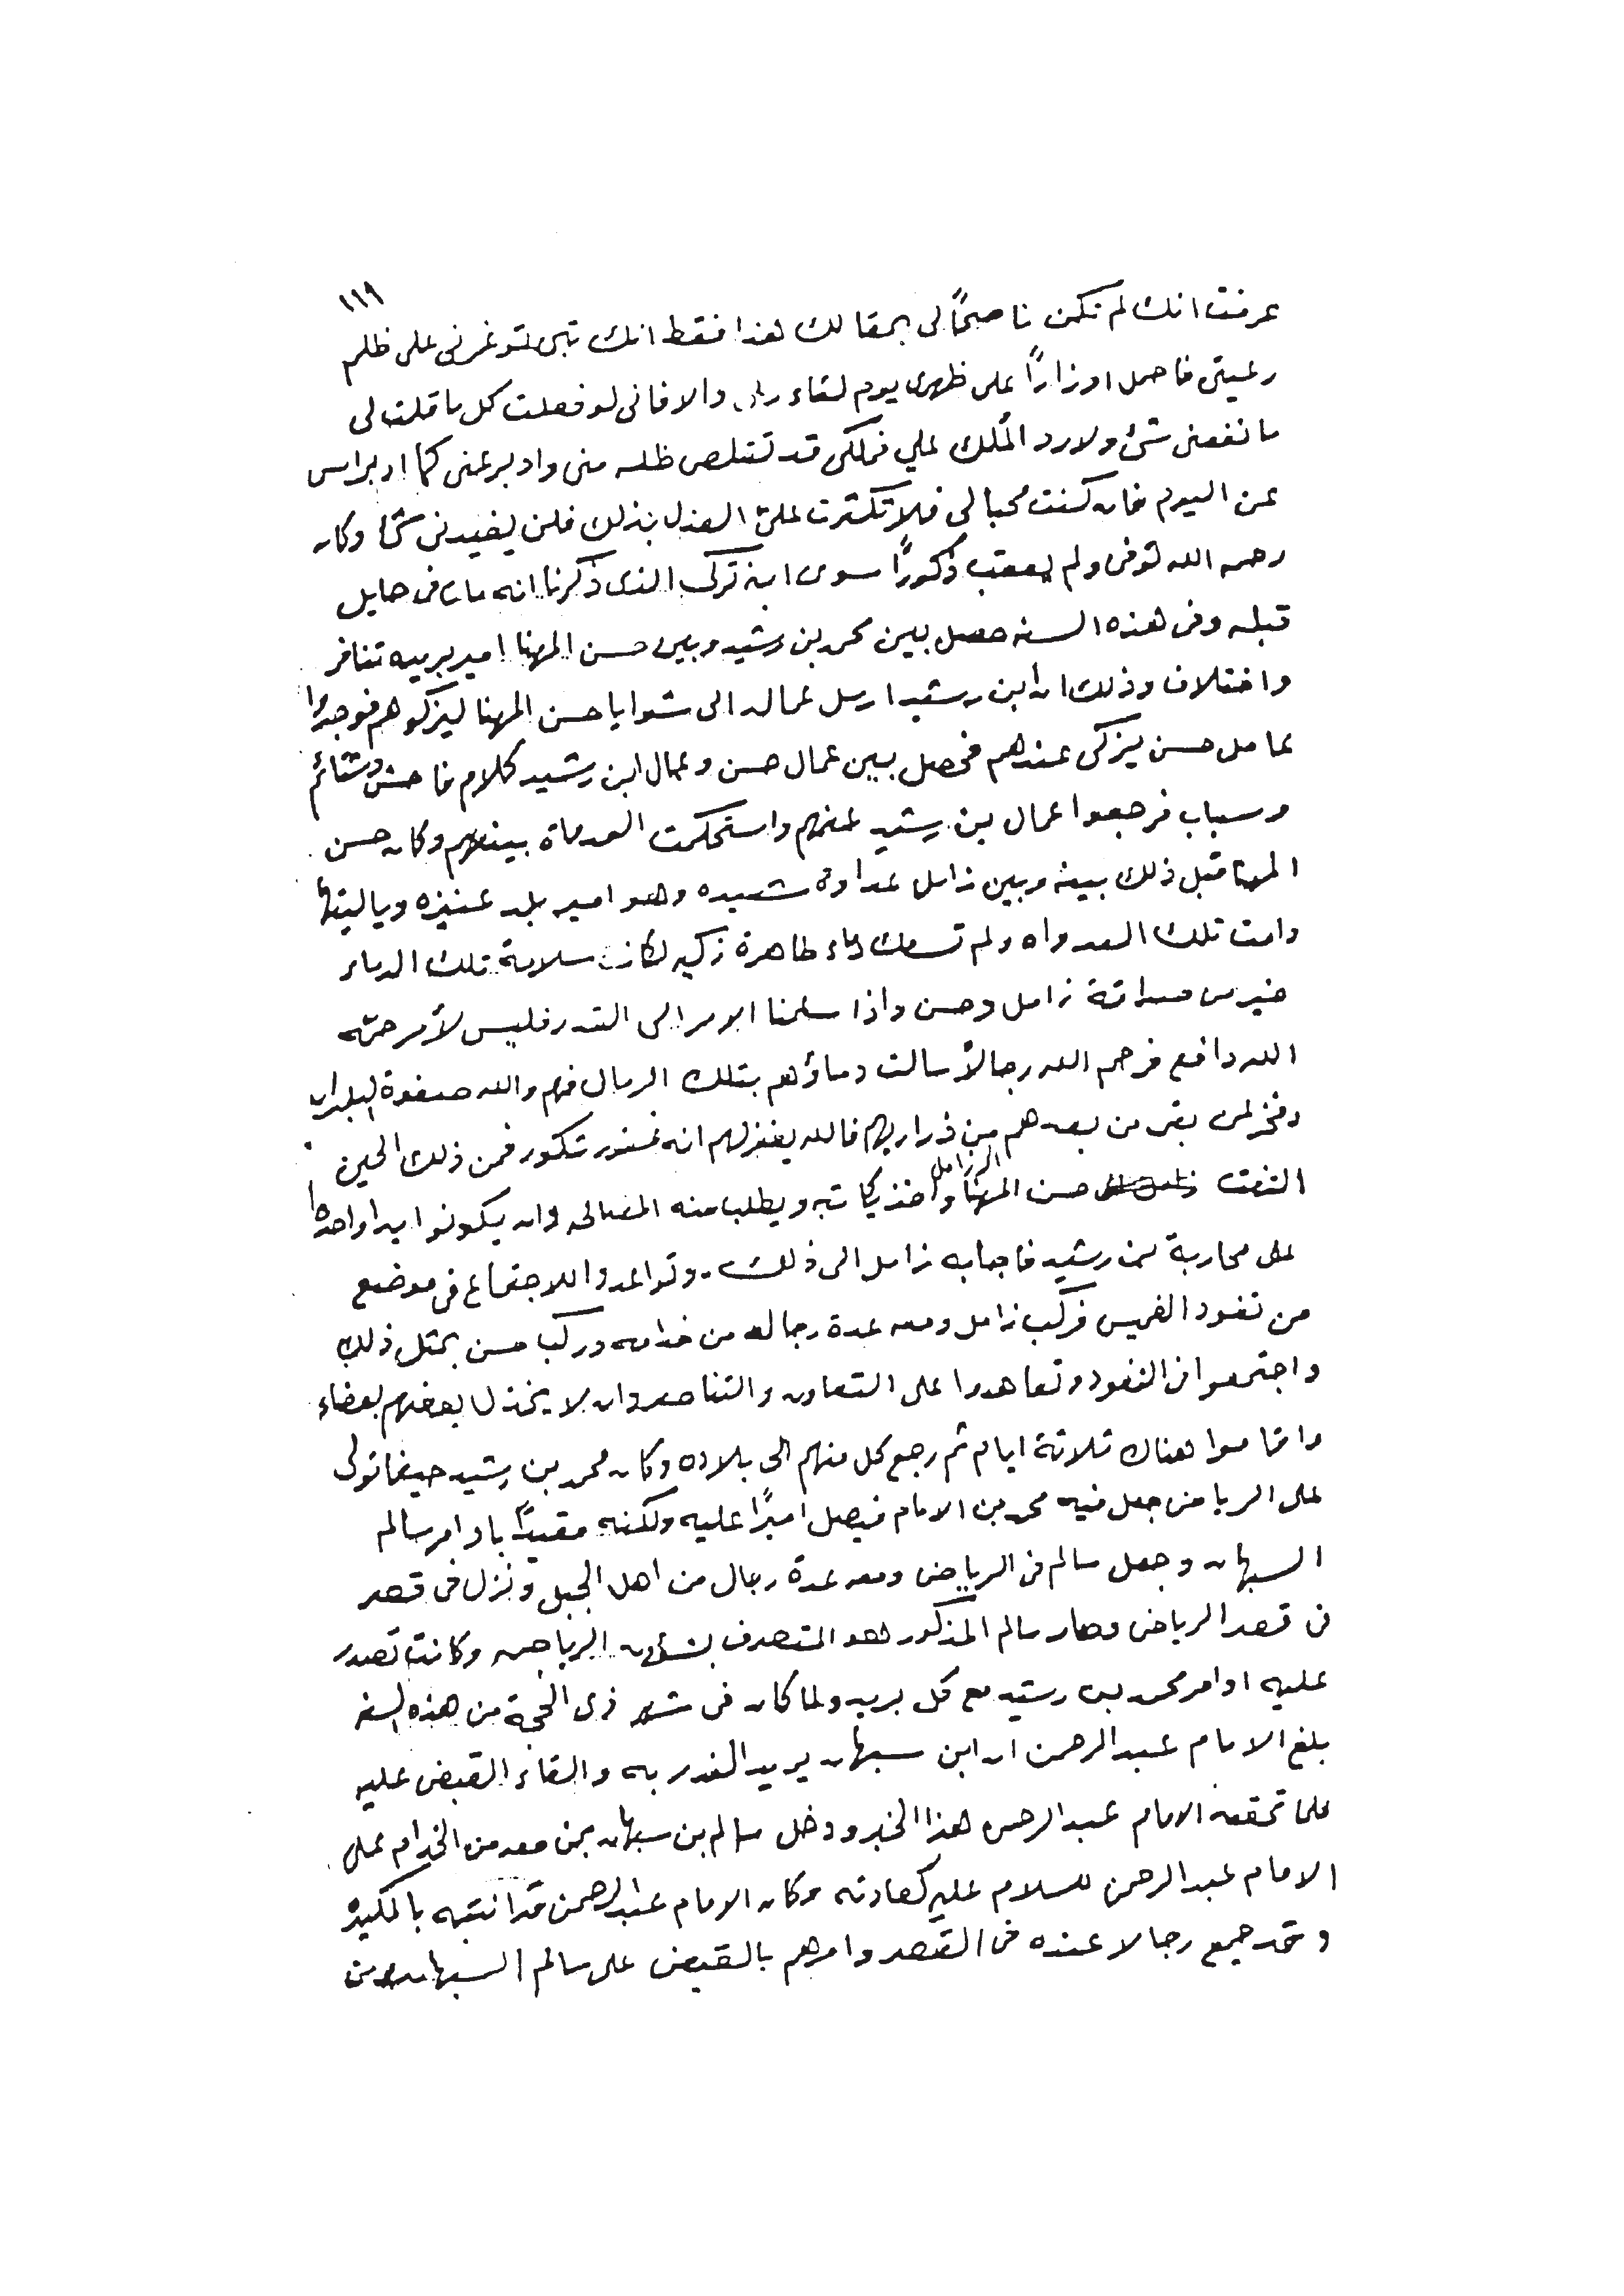 ١١٩
عرفت انك لم تكن ناصحًا لي بمقالك هذا فقط انك تبي توغرني على ظلم
رعيتي فاحمل اوزارًا على ظهري يوم لقاء ربي والا فاني لو فعلت كل ما قلت لي
ما نفعني شئ ولا رد الملك علي فملكي قد تقلص ظله مني وادبر عني كما ادبر امس
عن اليوم فان كنت محبا لي فلا تكثرت علي العذل بذلك فلن يفيدني شئا وكان
رحمه الله توفى ولم يعقب ذكورًا سوى ابنه تركي الذي ذكرنا انه مات في حايل
قبله وفي هذه السنه حصل بين محمد بن رشيد وبين حسن المهنا امير بريده تنافر
واختلاف وذلك ان ابن رشيد ارسل عماله الى شوايا حسن المهنا ليزكوهم فوجدوا
عامل حسن يزكي عندهم فحصل بين عمال حسن وعمال ابن رشيد كلام فاحش وشتائم
وسباب فرجعوا عمال بن رشيد عنهم واستحكمت العداوة بينهم وكان حسن
المهنا قبل ذلك بينه وبين زامل عداوة شديده وهو امير بلد عنيزه وياليتها
دامت تلك العدواه ولم تسفك دماء طاهرة زكيه لكانت سلامة تلك الدماء
خير من صداقة زامل وحسن واذا سلمنا الامر الى القدر فليس لأمر حتمه
الله دافع فرحم الله رجالاً سالت دماؤهم بتلك الرمال فهم والله صفوة البلدان
وفخر لمن بقي من بعدهم من ذراريهم فالله يغفر لهم انه غفور شكور فمن ذلك الحين
التفت حسن المهنا الى زامل واخذ يكاتبه ويطلب منه المصالحه وان يكونوا يدا واحدة
على محاربة بن رشيد فاجابه زامل الى ذلك. وتواعدوا للاجتماع في موضع
من نفود الغميس فركب زامل ومعه عدة رجاله من خدامه وركب حسن بمثل ذلك
واجتمعوا في النفود وتعاهدوا على التعاون والتناصر وان لا يخذل بعضهم بعضاء
واقاموا هناك ثلاثة ايام ثم رجع كل منهم الى بلاده وكان محمد بن رشيد حينما تولى
على الرياض جعل فيه محمد بن الامام فيصل اميرًا عليه ولكنه مقيدًا باوامر سالم
السبهان وجعل سالم في الرياض ومعه عدة رجال من اهل الجبل ونزل في قصر
في قصر الرياض وصار سالم المذكور هو المتصرف بشؤن الرياض وكانت تصدر
عليه اوامر محمد بن رشيد مع كل بريد ولما كان في شهر ذي الحجة من هذه السنه
بلغ الامام عبد الرحمن ان ابن سبهان يريد الغدر به والقاء القبض عليه
فلما تحققه الامام عبد الرحمن هذا الخبر ودخل سالم بن سبهان بمن معه من الخدام على
الامام عبد الرحمن للسلام عليه كعادته وكان الامام عبد الرحمن قد انتبه بالمكيدة
وقد جمع رجالا عنده في القصر وامرهم بالقبض على سالم السبهان ومن